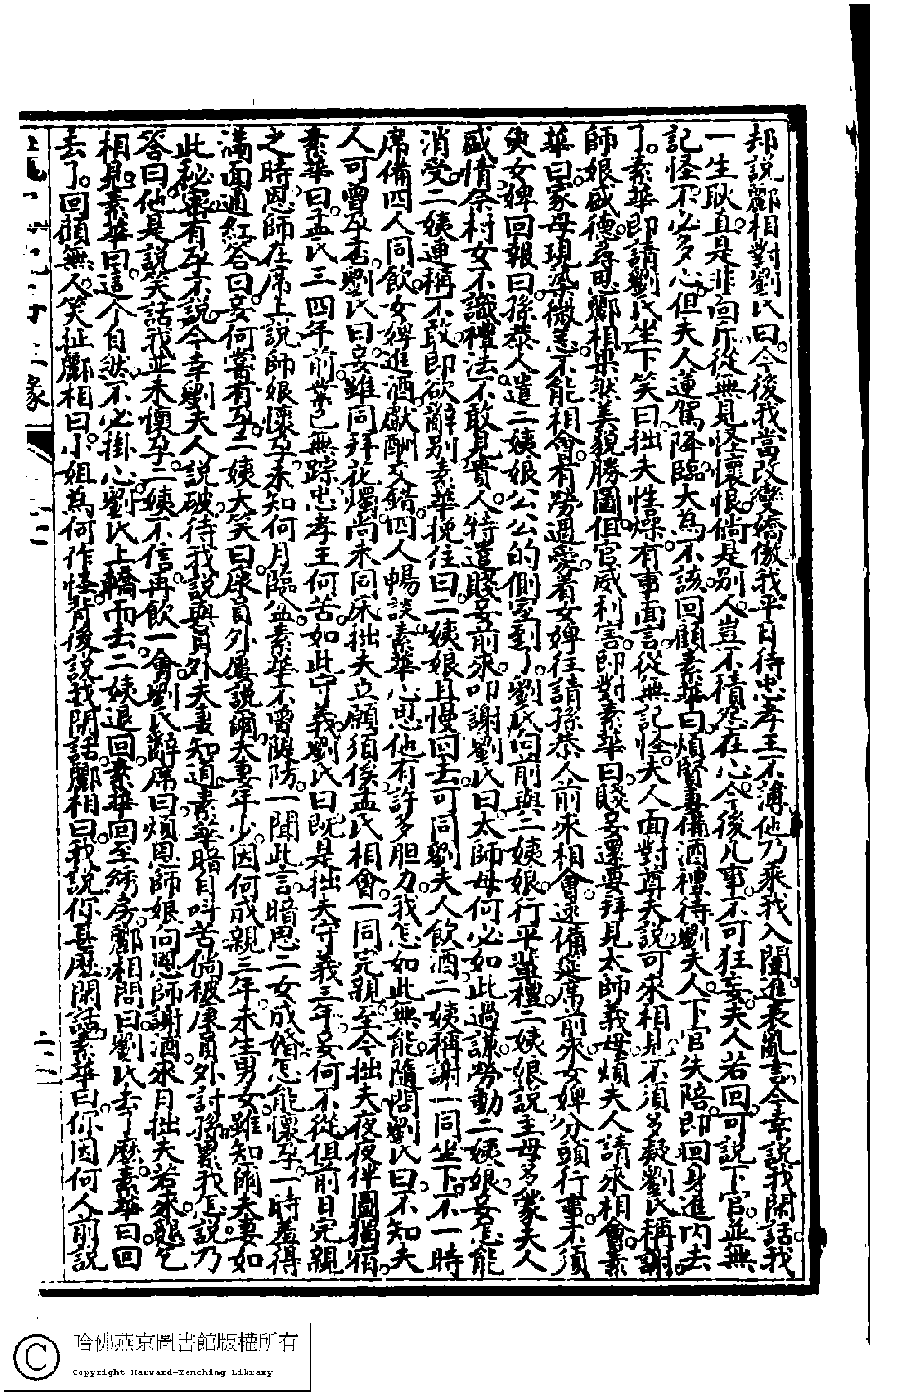 却說酈相對劉氏曰今後我當改變驕傲我平日待忠孝王不薄他乃乘我入闈進表亂言今幸說我閑話我
一生耿直是非面斥從無見怪懷恨倘是别人豈不積怨在心今後凡事不可狂妄夫人若回可說下官並無
記怪不必多心但夫人蓮駕降臨大為不該回顧素華曰煩賢妻備酒禮待劉夫人下官失陪即回身進内去
了素華即請劉氏坐下笑曰拙夫性燥有事面言從無記怪夫人面對尊夫說可來相見不須多疑劉氏稱謝
師娘盛德尋思酈相果然美貌勝圖但官威利害即對素華曰賤妾還要拜見太師義母煩夫人請來相會素
華曰家母現染微恙不能相會有勞過愛着女婢往請孫恭人前來相會速備筵席前來女婢分頭行事不須
臾女婢回報曰孫恭人遣二姨娘公公的側室到了劉氏向前與二姨娘行平輩禮二姨娘說主母多蒙夫人
盛情奈村女不識禮法不敢見貴人特遣賤妾前來叩謝劉氏曰太師母何必如此過謙勞動二姨娘妾怎能
消受二姨連稱不敢即欲辭别素華挽住曰二姨娘且慢回去可同劉夫人飲酒二姨稱謝一同坐下不一時
席備四人同飲女婢進酒獻酬交錯四人暢談素華心思他有許多胆力我怎如此無能隨問劉氏曰不知夫
人可曾孕否劉氏曰妾雖同拜花燭尚未同床拙夫立願須俟孟氏相會一同完親至今拙夫夜夜伴圖獨宿
素華曰孟氏三四年前業已無踪忠孝王何苦如此守義劉氏曰既是拙夫守義三年妾何不從但前日完親
之時恩師在席上說師娘懷孕未知何月臨盆素華不曾隄防一聞此言暗思二女成婚怎能懷孕一時羞得
滿面通紅答曰妾何嘗有孕二姨大笑曰康員外屢說爾夫妻年少因何成親三年未生男女雖知爾夫妻如
此秘密有孕不說今幸劉夫人說破待我說與員外夫妻知道素華暗自叫苦倘被康員外討孫累我怎說乃
答曰他是說笑話我並未懷孕二姨不信再飲一會劉氏辭席曰煩恩師娘向恩師謝酒來日拙夫若來懇乞
相見素華曰這个自然不必掛心劉氏上轎而去二姨退回素華回至綉房酈相問曰劉氏去了麼素華曰回
去了回顧無人笑扯酈相曰小姐為何作怪背後說我閑話酈相曰我說你甚麼閑話素華曰你因何人前說
哈佛燕京圖書館版權所有
Copyright Harvard-Yenching Library